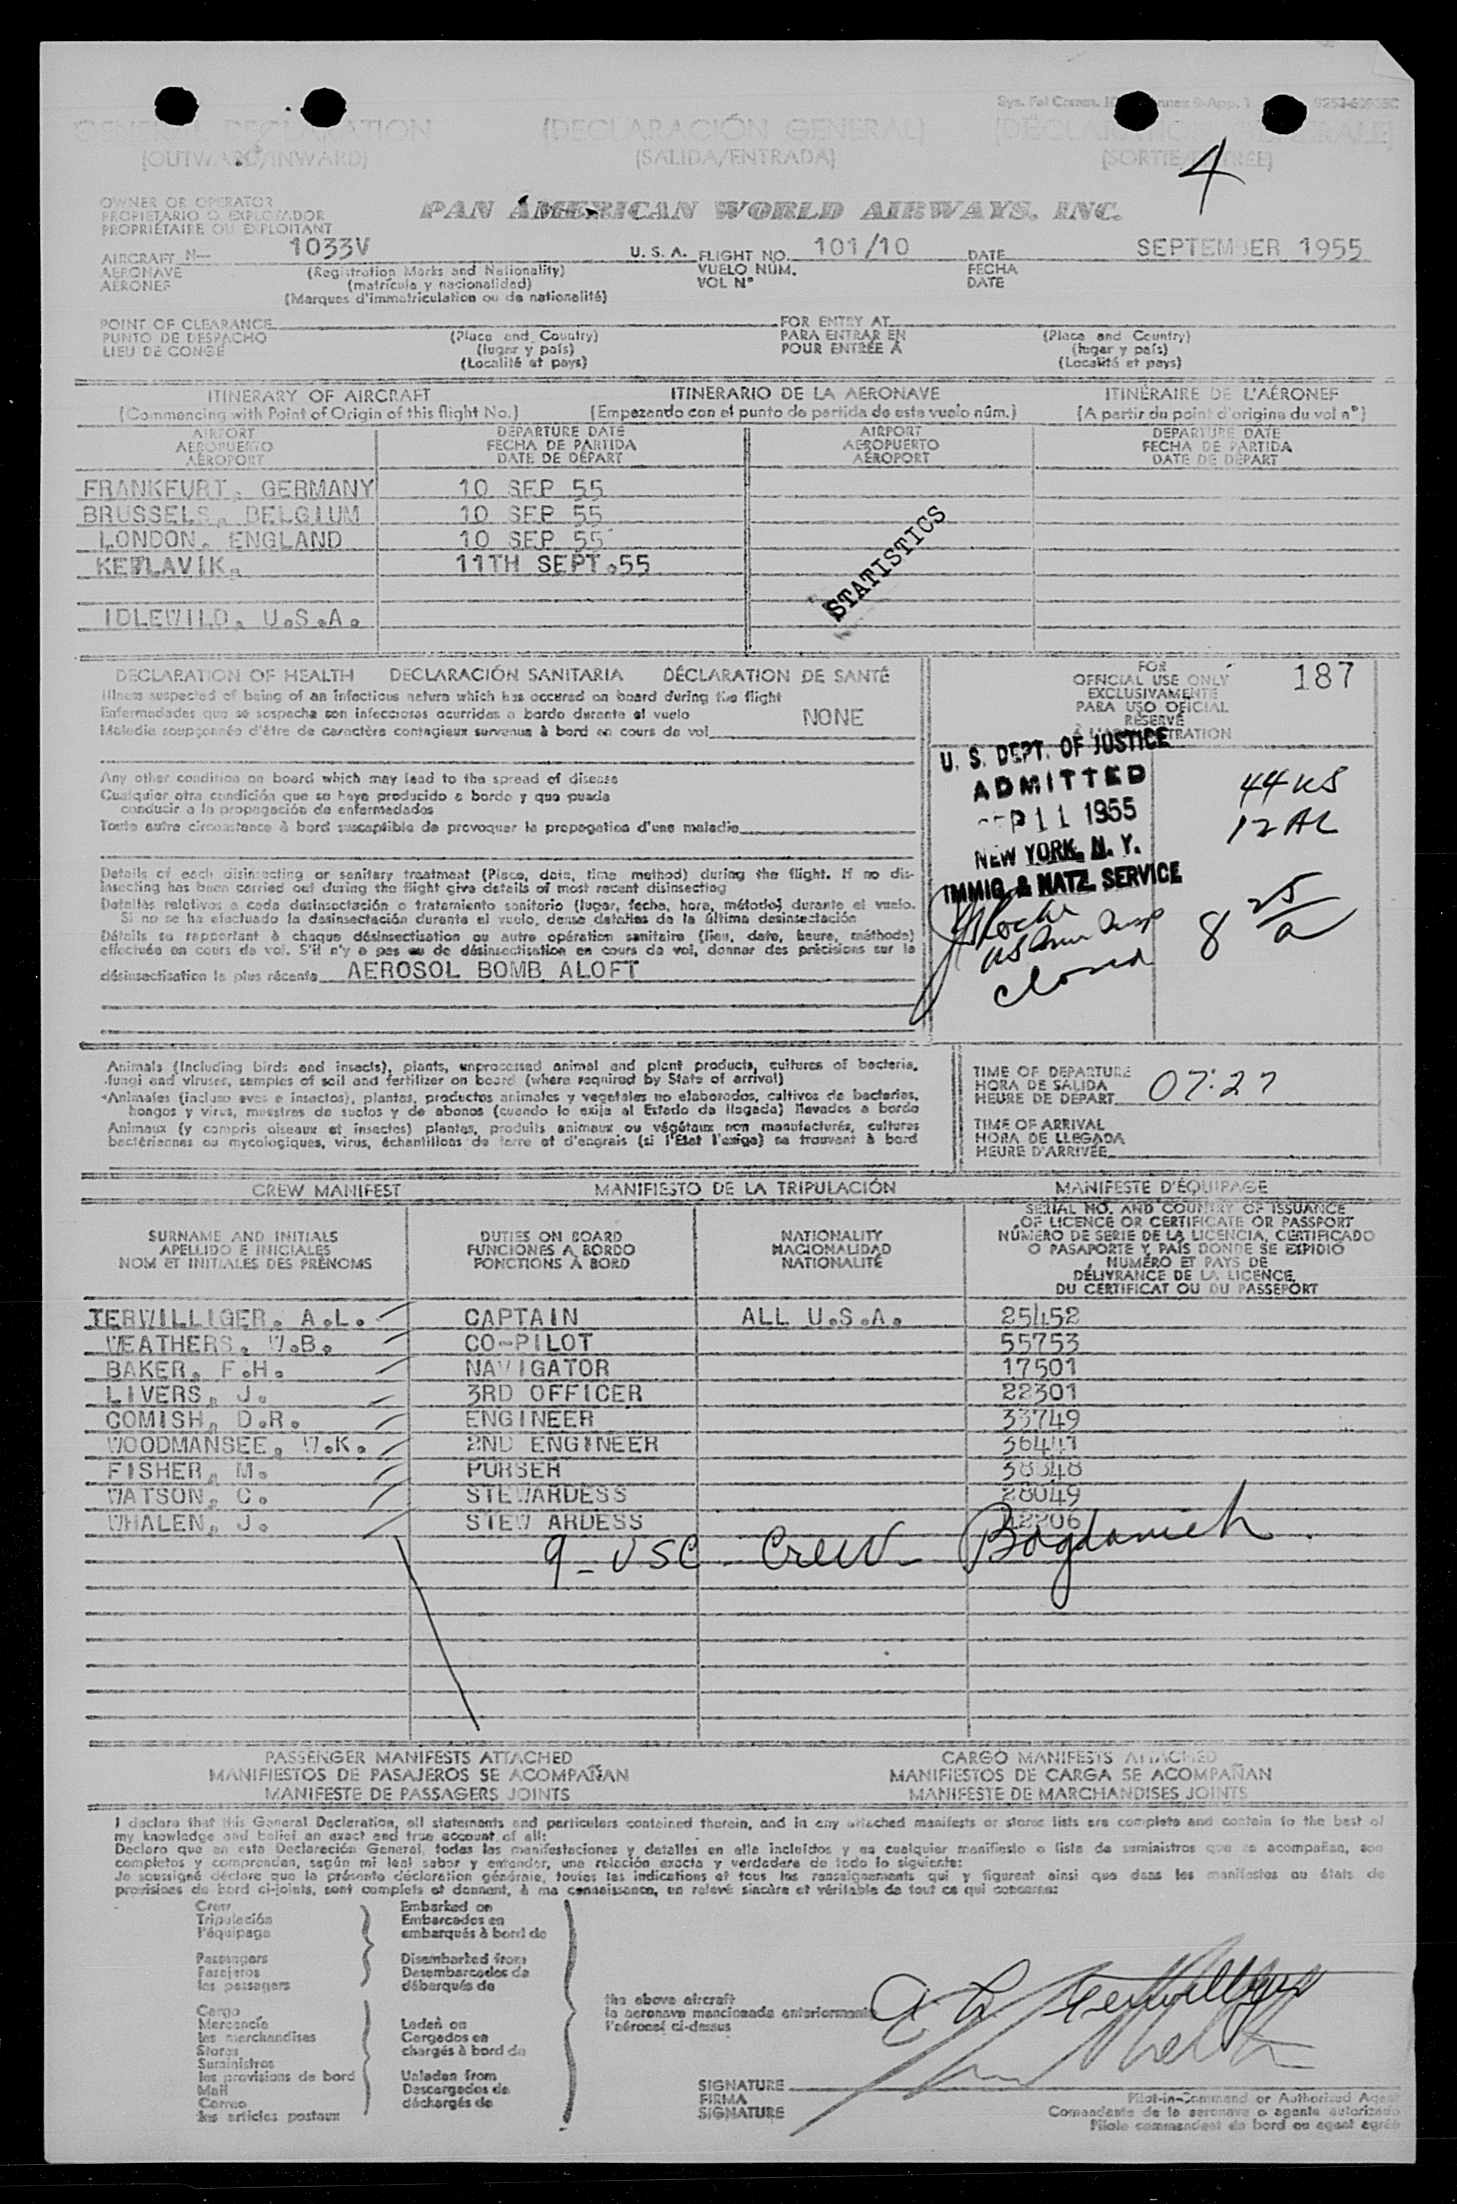 GENERAL DECLARATION (DECLARACIÓN GENERAL) [DÉCLARATION GÉNÉRALE]
(OUTWARD/INWARD) (SALIDA/ENTRADA) (SORTIE/ENTRÉE)
4
OWNER OR OPERATOR
PROPIETARIO O EXPLOTADOR
PROPRIÉTAIRE OU EXPLOITANT
PAN AMERICAN WORLD AIRWAYS, INC.
AIRCRAFT N— 1033V U. S. A. FLIGHT NO. 101/10 DATE SEPTEMBER 1955
AERONAVE (Registration Marks and Nationality) VUELO NÚM. FECHA
AÉRONEF (matrícula y nacionalidad) VOL N° DATE
(Marques d'immatriculation ou de nationalité)
POINT OF CLEARANCE FOR ENTRY AT
PUNTO DE DESPACHO (Place and Country) PARA ENTRAR EN (Place and Country)
LIEU DE CONGÉ (lugar y país) POUR ENTRÉE À (lugar y país)
(Localité et pays) (Localité et pays)
ITINERARY OF AIRCRAFT ITINERARIO DE LA AERONAVE ITINÉRAIRE DE L'AÉRONEF
(Commencing with Point of Origin of this flight No.) (Empezando con el punto de partida de este vuelo núm.) (A partir du point d'origine du vol n°)
AIRPORT DEPARTURE DATE AIRPORT DEPARTURE DATE
AEROPUERTO FECHA DE PARTIDA AEROPUERTO FECHA DE PARTIDA
AÉROPORT DATE DE DÉPART AÉROPORT DATE DE DÉPART
FRANKFURT, GERMANY 10 SEP 55
BRUSSELS, BELGIUM 10 SEP 55
LONDON, ENGLAND 10 SEP 55
KEFLAVIK, 11TH SEPT.55
IDLEWILD, U.S.A.
STATISTICS
DECLARATION OF HEALTH DECLARACIÓN SANITARIA DÉCLARATION DE SANTÉ
Illness suspected of being of an infectious nature which has occured on board during the flight
Enfermedades que se sospecha son infecciosas ocurridas a bordo durante el vuelo NONE
Maladie soupçonnée d'être de caractère contagieux survenue à bord en cours de vol
Any other condition on board which may lead to the spread of disease
Cualquier otra condición que se haya producido a bordo y que pueda
conducir a la propagación de enfermedades
Toute autre circonstance à bord susceptible de provoquer la propagation d'une maladie
Details of each disinsecting or sanitary treatment (Place, date, time method) during the flight. If no dis-
insecting has been carried out during the flight give details of most recent disinsecting
Detalles relativos a cada desinsectación o tratamiento sanitario (lugar, fecha, hora, método) durante el vuelo.
Si no se ha efectuado la desinsectación durante el vuelo, dense detalles de la última desinsectación
Détails se rapportant à chaque désinsectisation ou autre opération sanitaire (lieu, date, heure, méthode)
effectuée en cours de vol. S'il n'y a pas eu de désinsectisation en cours de vol, donner des précisions sur la
désinsectisation la plus récente AEROSOL BOMB ALOFT
FOR
OFFICIAL USE ONLY 187
EXCLUSIVAMENTE
PARA USO OFICIAL
RÉSERVÉ
À L'ADMINISTRATION
U. S. DEPT. OF JUSTICE
ADMITTED
SEP 11 1955
NEW YORK, N. Y.
IMMIG. & NATZ. SERVICE
44 US
12 AL
Closed
8 25/a
Animals (Including birds and insects), plants, unprocessed animal and plant products, cultures of bacteria,
fungi and viruses, samples of soil and fertilizer on board (where required by State of arrival)
Animales (incluso aves e insectos), plantas, productos animales y vegetales no elaborados, cultivos de bacterias,
hongos y virus, muestras de suelos y de abonos (cuando lo exija el Estado de llegada) llevados a bordo
Animaux (y compris oiseaux et insectes) plantes, produits animaux ou végétaux non manufacturés, cultures
bactériennes ou mycologiques, virus, échantillons de terre et d'engrais (si l'Etat l'exige) se trouvent à bord
TIME OF DEPARTURE
HORA DE SALIDA
HEURE DE DÉPART 07:27
TIME OF ARRIVAL
HORA DE LLEGADA
HEURE D'ARRIVÉE
CREW MANIFEST MANIFIESTO DE LA TRIPULACIÓN MANIFESTE D'ÉQUIPAGE
SURNAME AND INITIALS
APELLIDO E INICIALES
NOM ET INITIALES DES PRÉNOMS
DUTIES ON BOARD
FUNCIONES A BORDO
FONCTIONS À BORD
NATIONALITY
NACIONALIDAD
NATIONALITÉ
SERIAL NO. AND COUNTRY OF ISSUANCE
OF LICENCE OR CERTIFICATE OR PASSPORT
NÚMERO DE SERIE DE LA LICENCIA, CERTIFICADO
O PASAPORTE Y PAÍS DONDE SE EXPIDIÓ
NUMÉRO ET PAYS DE
DÉLIVRANCE DE LA LICENCE,
DU CERTIFICAT OU DU PASSEPORT
TERWILLIGER, A.L. CAPTAIN ALL U.S.A. 25452
WEATHERS, W.B. CO-PILOT 55753
BAKER, F.H. NAVIGATOR 17501
LIVERS, J. 3RD OFFICER 22301
COMISH, D.R. ENGINEER 33749
WOODMANSEE, W.K. 2ND ENGINEER
FISHER, M. PURSER
WATSON, C. STEWARDESS 28049
WHALEN, J. STEW ARDESS 42206
9 - USC - Crew - Bogdanich
PASSENGER MANIFESTS ATTACHED CARGO MANIFESTS ATTACHED
MANIFIESTOS DE PASAJEROS SE ACOMPAÑAN MANIFIESTOS DE CARGA SE ACOMPAÑAN
MANIFESTE DE PASSAGERS JOINTS MANIFESTE DE MARCHANDISES JOINTS
I declare that this General Declaration, all statements and particulars contained therein, and in any attached manifests or stores lists are complete and contain to the best of
my knowledge and belief an exact and true account of all:
Declaro que en esta Declaración General, todas las manifestaciones y detalles en ella incluidos y en cualquier manifiesto o lista de suministros que se acompañan, son
completos y comprenden, según mi leal saber y entender, una relación exacta y verdadera de todo lo siguiente:
Je soussigné déclare que la présente déclaration générale, toutes les indications et tous les renseignements qui y figurent ainsi que dans les manifestes ou états de
provisions de bord ci-joints, sont complets et donnent, à ma connaissance, un relevé sincère et véritable de tout ce qui concerne:
Crew
Tripulación
l'équipage
Passengers
Pasajeros
les passagers
Embarked on
Embarcados en
embarqués à bord de
Disembarked from
Desembarcados de
débarqués de
Cargo
Mercancía
les marchandises
Stores
Suministros
les provisions de bord
Mail
Correo
les articles postaux
Laden on
Cargados en
chargés à bord de
Unladen from
Descargados de
déchargés de
the above aircraft
la aeronave mencionada anteriormente
l'aéronef ci-dessus
A L Terwilliger
SIGNATURE
FIRMA
SIGNATURE
Pilot-in-Command or Authorized Agent
Comandante de la aeronave o agente autorizado
Pilote commandant de bord ou agent agréé